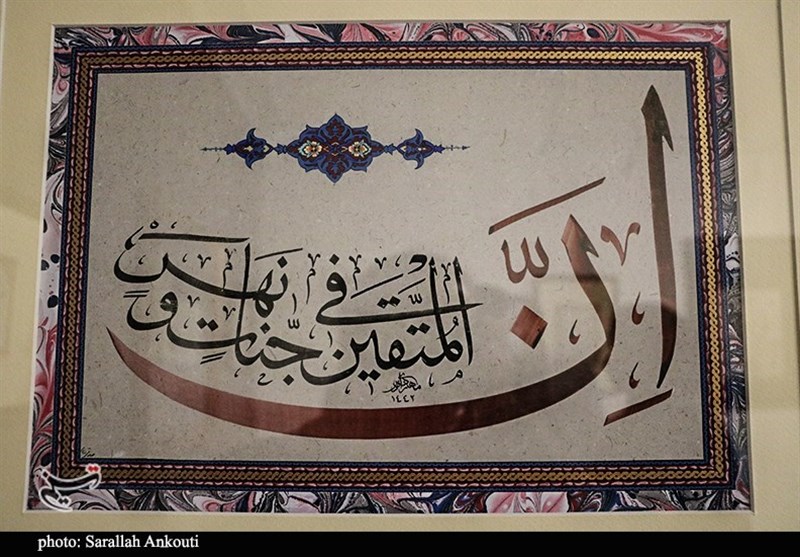 إِنَّ المُتَّقينَ في جَنّاتٍ وَ نَهَرٍ
١٤٤٢
تسنیم
photo: Sarallah Ankouti